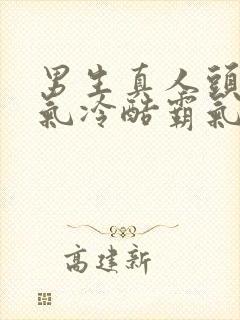 男生真人頭
氣冷酷霸氣
高建新